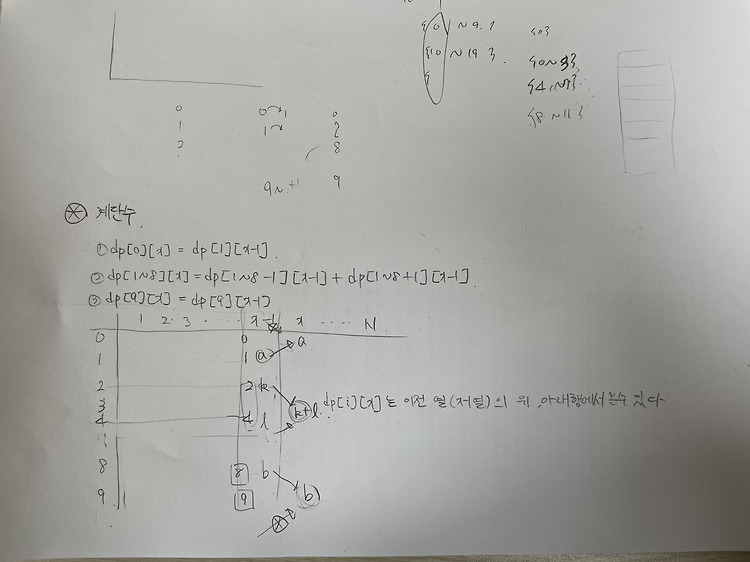 {0 ~ 9 }
{10 ~ 19 }
{
{0}
{0~3}
{4 ~7}
{8 ~11}
0 0 1 0
1 1 2
2 8
9
계단수
① dp[0][x] = dp[1][x-1]
② dp[1~8][x] = dp[1~8-1][x-1] + dp[1~8+1][x-1]
③ dp[9][x] = dp[9][x-1]
1 2 3 ... x-1 x .... N
0 0 a
1 1 a
2 2 k
3 k+l dp[i][x]는 이전 열(x-1열)의 위, 아래행에서 올수 있다.
4 4 l
8 8 b
9 9 b